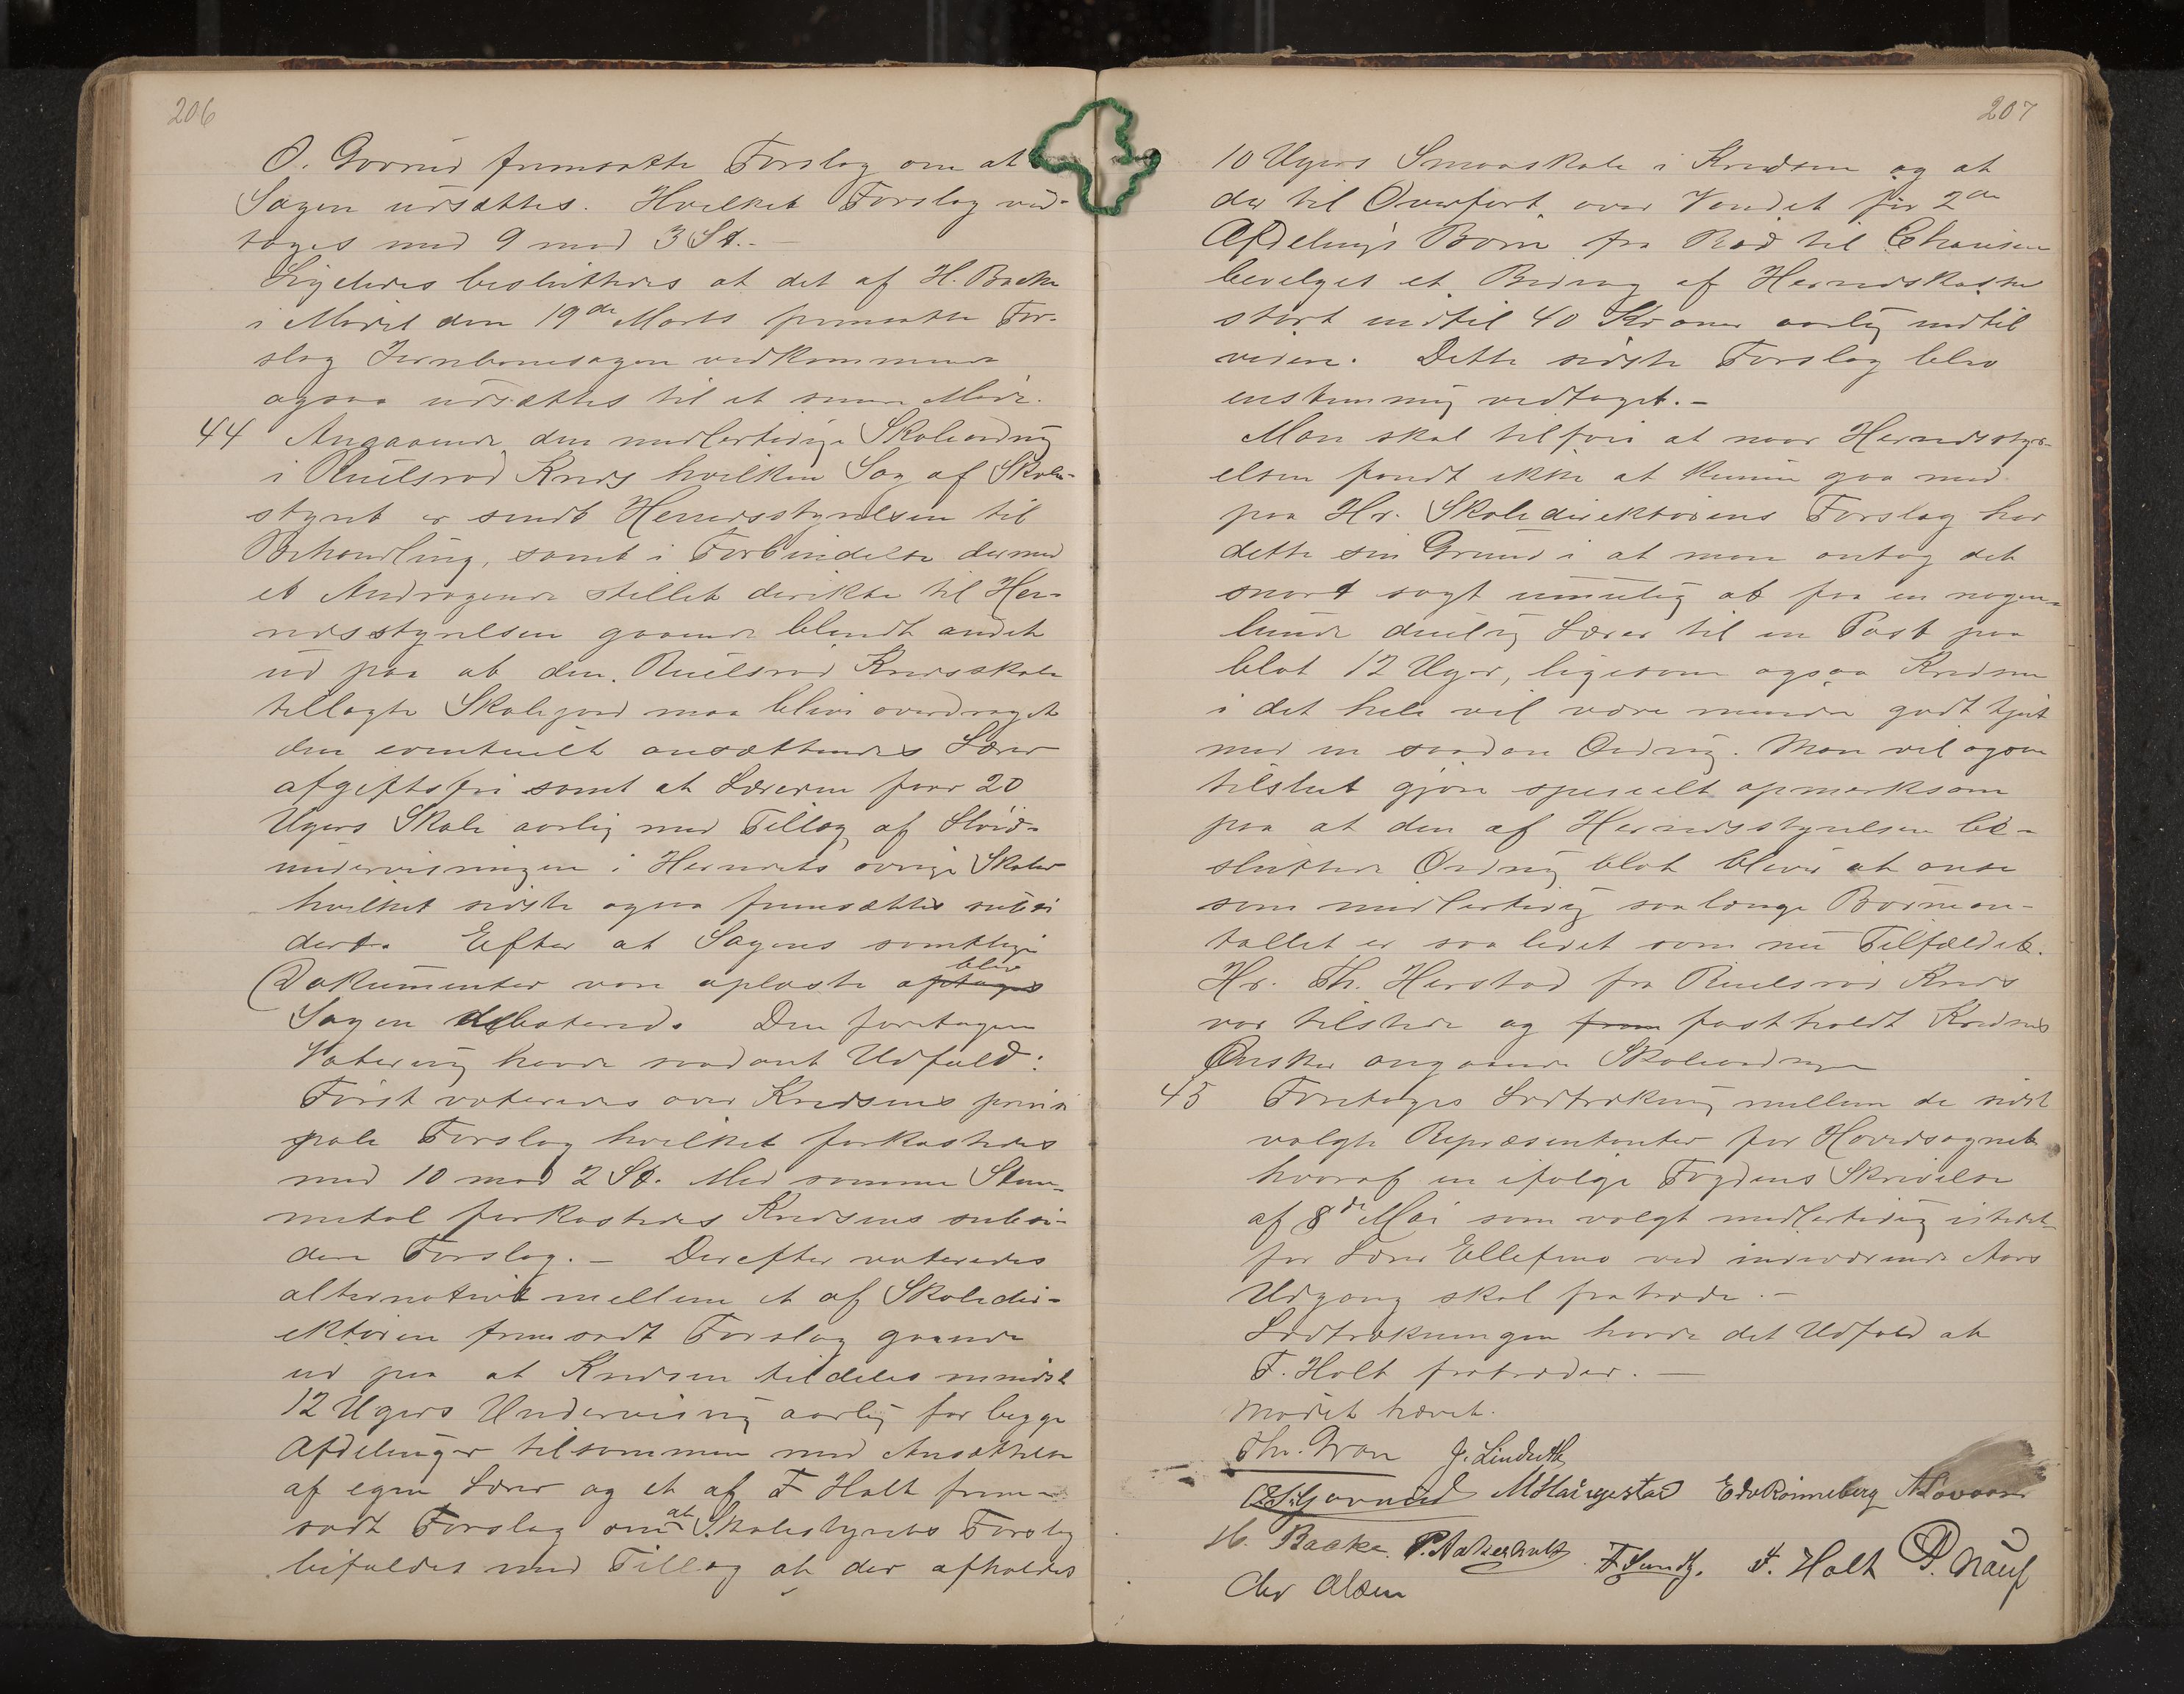 206
O. Govrud fremsatte Forslag om at
Sagen udsættes. Hvilket Forslag ved-
toges med 9 mod 3 St. —
Ligeledes besluttedes at det af H. Backe
i Mødet den 19de Marts fremsatte For-
slag Jernbanesagen vedkommende
ogsaa udsættes til et senere Møde.
44 Angaaende den midlertidige Skoleordning
i Ruelsrød Kreds hvilken Sag af Skole-
styret er sendt Herredsstyrelsen til
Behandling, samt i Forbindelse dermed
et Andragende stillet derikte til Her-
redsstyrelsen gaaende blandt andet
ud paa at den Ruelsrød Kredsskole
tillagte Skolejord maa blive overdraget
den eventuelt ansættendes Lærer
afgiftsfri samt at Læreren faar 20
Ugers Skole aarlig med Tillæg af Sløid-
undervisningen i Herredets øvrige Skoler
hvilket sidste ogsaa fremsættes subsi
dert. Efter at Sagens samtlige
Dokumenter vare oplæste optages blev
Sagen debatered. Den foretagne
Votering havde saadant Udfald:
Først voteredes over Kredsens prinsi
pale Forslag hvilket forkastedes
med 10 mod 2 St. Med samme Stem-
metal forkastedes Kredsens subsi-
dære Forslag. — Derefter voteredes
alternativt mellem et af Skoledir-
ektøren fremsadt Forslag gaaende
ud paa at Kredsen tildeles mindst
12 Ugers Undervisning aarlig for begge
Afdelinger tilsammen med Ansættelse
af egen Lærer og et af F Holt frem-
sadt Forslag om at Skolestyrets Forslag
bifaldes med Tillæg at der afholdes
207
10 Ugers Smaaskole i Kredsen og at
der til Overfart over Vandet for 2den
Afdelings Børn fra Rød til
bevilges et Bidrag af Herredskassen
stort indtil 40 Kroner aarlig indtil
videre. Dette sidste Forslag blev
enstemmig vedtaget. —
Man skal tilføie at naar Herredsstyr-
elsen fandt ikke at kunne gaa med
paa Hr. Skoledirektørens Forslag har
dette sin Grund i at man antog det
snart sagt umulig at faa en nogen-
lunde duelig Lærer til en Post paa
blot 12 Uger, ligesom ogsaa Kredsen
i det hele vil være mindre godt tjent
med en saadan Ordning. Man vil ogsaa
tilslut gjøre specielt opmærksom
paa at den af Herredsstyrelsen be-
sluttede Ordning blot bliver at anse
som midlertidig saalænge Børnean-
tallet er saa lidet som nu Tilfældet.
Hr. Th. Herstad fra Ruelsrød Kreds
var tilstede og frem fastholdt Kredsens
Ønsker angaaende Skoleordningen
45 Foretoges Lodtrækning mellem de sidst
valgte Repræsentanter for Hovedsognet
hvoraf en ifølge Fogdens Skrivelse
af 8de Mai som valgt midlertidig istedet-
for Lærer Ellefsens ved indeværende Aars
Udgang skal fratræde. —
Lodtrækningen havde det Udfald at
F. Holt fratræder. —
Mødet hævet.
Thr. Gran J. Linduth
O. Govrud M Haugestad Edv Rønneberg
H. Backe. P. Aakerholt F Lund. F. Holt P. Nauf
Chr Olsen